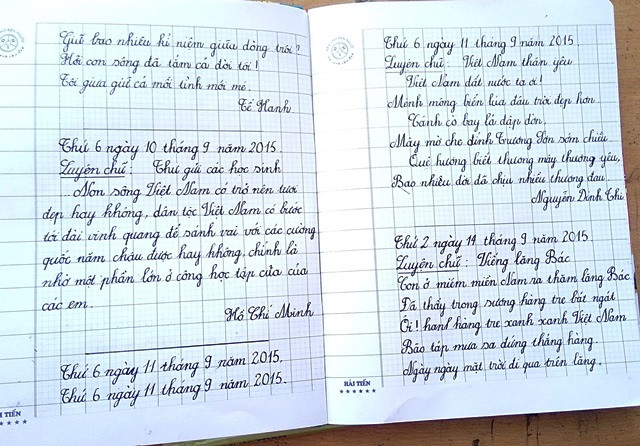 Giữ bao nhiêu kỉ niệm giữa dòng trôi?
Hỡi con sông đã tắm cả đời tôi!
Tôi giữa giữ cả mối tình mới mẻ.
Tế Hanh
Thứ 6 ngày 10 tháng 9 năm 2015.
Luyện chữ: Thư gửi các học sinh
Non sông Việt Nam có trở nên tươi
đẹp hay không, dân tộc Việt Nam có bước
tới đài vinh quang để sánh vai với các cường
quốc năm châu được hay không, chính là
nhờ một phần lớn ở công học tập của của
các em.
Hồ Chí Minh
Thứ 6 ngày 11 tháng 9 năm 2015.
Thứ 6 ngày 11 tháng 9 năm 2015.
TIẾN
Thứ 6 ngày 11 tháng 9 năm 2015.
Luyện chữ: Việt Nam thân yêu
Việt Nam đất nước ta ơi!
Mênh mông biển lúa đâu trời đẹp hơn.
Cánh cò bay lả dập dờn,
Mây mờ che đỉnh Trường Sơn sớm chiều
Quê hương biết thương mây thương yêu,
Bao nhiêu đời đã chịu nhiều thương đau.
Nguyễn Đình Thi
Thứ 2 ngày 14 tháng 9 năm 2015.
Luyện chữ: Viếng lăng Bác
Con ở miềm miền Nam ra thăm lăng Bác
Đã thấy trong sương hàng tre bát ngát
Ôi! hanh hàng tre xanh xanh Việt Nam
Bão táp mưa sa đứng thẳng hàng.
Ngày ngày mặt trời đi qua trên lăng.
HẢI TIẾN